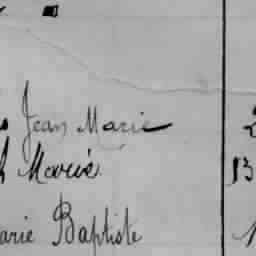 Jean Marie
Marie 13
arie Baptiste